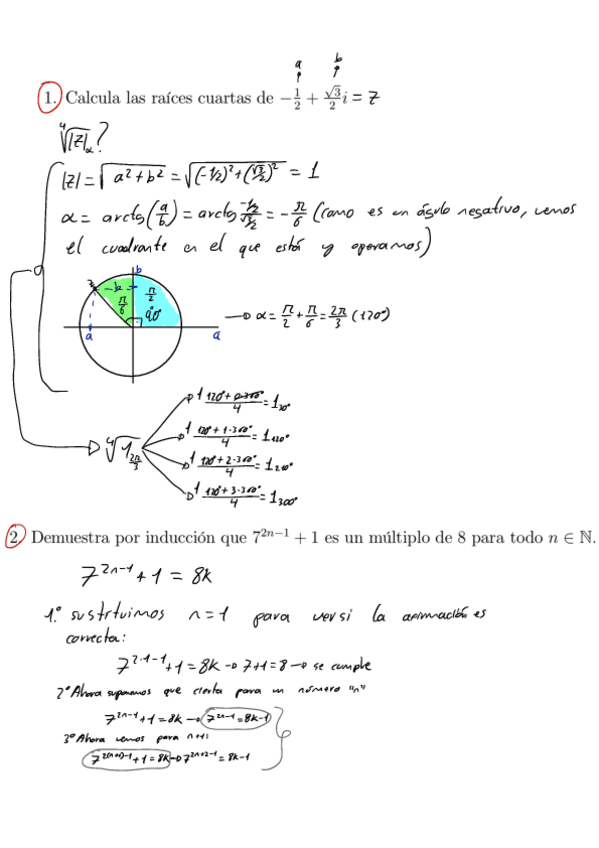 a b
1. Calcula las raíces cuartas de −1/2 + √3/2 i = z
⁴√|z|α ?
|z| = √a²+b² = √(-1/2)²+(√3/2)² = 1
α = arctg(a/b) = arctg -1/2 / √3/2 = -π/6 (como es un ángulo negativo, vemos
el cuadrante en el que está y operamos)
b
z -b π/2
π/6 90°
a a
→ α = π/2 + π/6 = 2π/3 (120°)
⁴√1 2π/3
1 120°+0·360°/4 = 1 30°
1 120°+1·360°/4 = 1 120°
1 120°+2·360°/4 = 1 210°
1 120°+3·360°/4 = 1 300°
2. Demuestra por inducción que 7²ⁿ⁻¹ + 1 es un múltiplo de 8 para todo n ∈ ℕ.
7²ⁿ⁻¹ + 1 = 8k
1.º sustituimos n=1 para ver si la afirmación es
correcta:
7²·¹⁻¹ + 1 = 8k → 7+1 = 8 → se cumple
2º Ahora suponemos que cierta para un número "n"
7²ⁿ⁻¹ + 1 = 8k → 7²ⁿ⁻¹ = 8k-1
3º Ahora vemos para n+1:
7²⁽ⁿ⁺¹⁾⁻¹ + 1 = 8k → 7²ⁿ⁺²⁻¹ = 8k-1